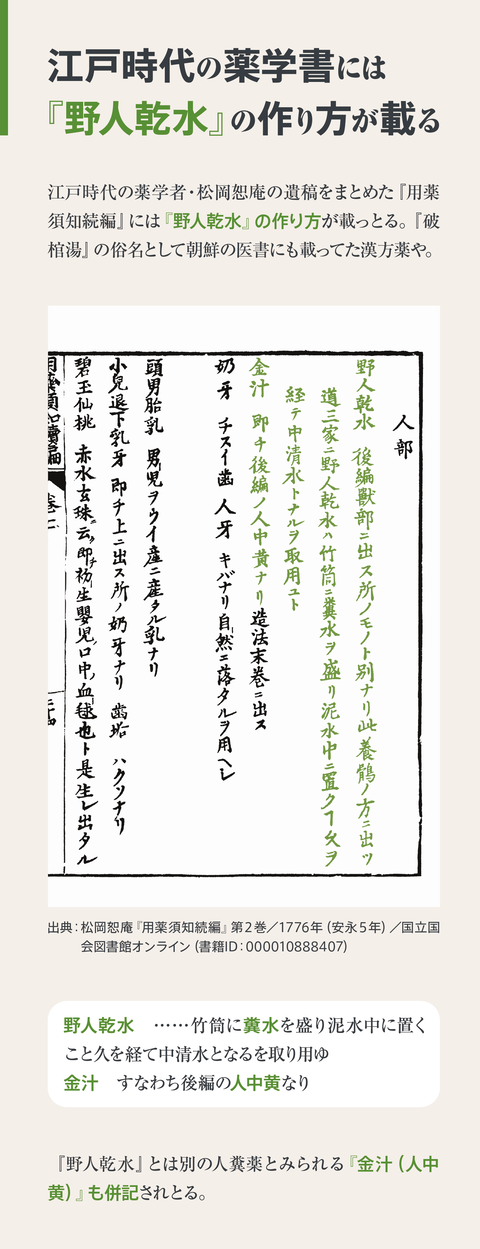 江戸時代の薬学書には
『野人乾水』の作り方が載る
江戸時代の薬学者・松岡恕庵の遺稿をまとめた『用薬
須知続編』には『野人乾水』の作り方が載っとる。『破
棺湯』の俗名として朝鮮の医書にも載ってた漢方薬や。
人部
野人乾水 後編獣部ニ出ス所ノモノト別ナリ此養鷯ノ方ニ出ツ
道三家ニ野人乾水ハ竹筒ニ糞水ヲ盛リ泥水中ニ置クヿ久ヲ
経テ中清水トナルヲ取用ユト
金汁 即チ後編ノ人中黄ナリ造法末巻ニ出ス
奶牙 チスイ歯 人牙 キバナリ自然ニ落タルヲ用ヘレ
頭男胎乳 男児ヲウイ産ニ産タル乳ナリ
小児退下乳牙 即チ上ニ出ス所ノ奶牙ナリ 歯垢 ハクソナリ
碧玉仙桃 赤水玄珠云即チ初生嬰児口中ノ血毬也ト是生レ出タル
用薬須知續編 巻二
出典：松岡恕庵『用薬須知続編』第2巻／1776年（安永5年）／国立国
会図書館オンライン（書籍ID：000010888407）
野人乾水 ……竹筒に糞水を盛り泥水中に置く
こと久を経て中清水となるを取り用ゆ
金汁 すなわち後編の人中黄なり
『野人乾水』とは別の人糞薬とみられる『金汁（人中
黄）』も併記されとる。